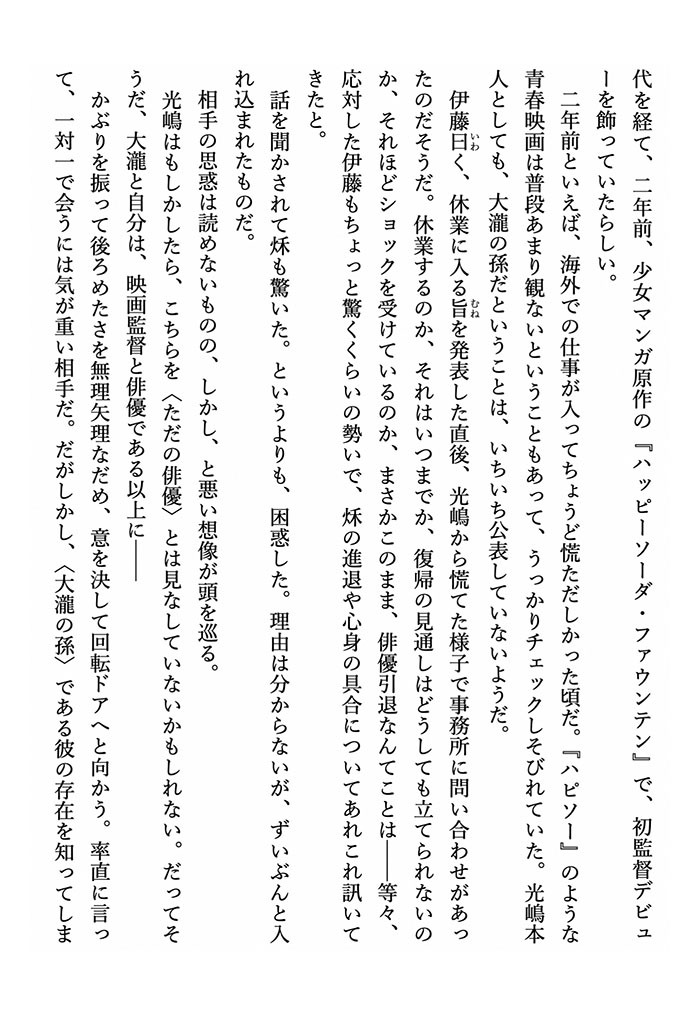 代を経て、二年前、少女マンガ原作の『ハッピーソーダ・ファウンテン』で、初監督デビュ
ーを飾っていたらしい。
　二年前といえば、海外での仕事が入ってちょうど慌ただしかった頃だ。『ハピソー』のような
青春映画は普段あまり観ないということもあって、うっかりチェックしそびれていた。光嶋本
人としても、大瀧の孫だということは、いちいち公表していないようだ。
　伊藤曰く、休業に入る旨を発表した直後、光嶋から慌てた様子で事務所に問い合わせがあっ
たのだそうだ。休業するのか、それはいつまでか、復帰の見通しはどうしても立てられないの
か、それほどショックを受けているのか、まさかこのまま、俳優引退なんてことは――等々、
応対した伊藤もちょっと驚くくらいの勢いで、秌の進退や心身の具合についてあれこれ訊いて
きたと。
　話を聞かされて秌も驚いた。というよりも、困惑した。理由は分からないが、ずいぶんと入
れ込まれたものだ。
　相手の思惑は読めないものの、しかし、と悪い想像が頭を巡る。
　光嶋はもしかしたら、こちらを〈ただの俳優〉とは見なしていないかもしれない。だってそ
うだ、大瀧と自分は、映画監督と俳優である以上に――
　かぶりを振って後ろめたさを無理矢理なだめ、意を決して回転ドアへと向かう。率直に言っ
て、一対一で会うには気が重い相手だ。だがしかし、〈大瀧の孫〉である彼の存在を知ってしま